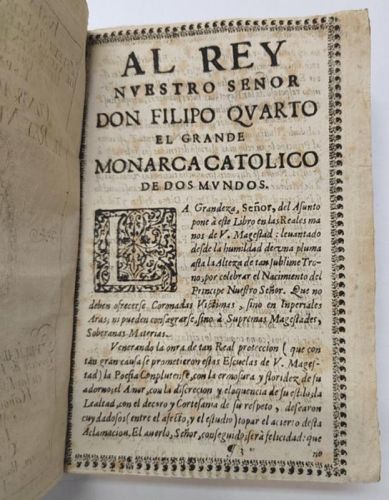 AL REY
NVESTRO SEÑOR
DON FILIPO QVARTO
EL GRANDE
MONARCA CATOLICO
DE DOS MVNDOS.
LA Grandeza, Señor, del Asunto
pone à este Libro en las Reales ma
nos de V. Magestad: levantado
desde la humildad de vna pluma
asta la Alteza de tan sublime Tro
no, por celebrar el Nacimiento del
Principe Nuestro Señor. Que no
deben ofrecerse Coronadas Victimas, sino en Inperiales
Aras, ni pueden consagrarse, sino à Supremas Magestades,
Soberanas Materias.
Venerando la onra de tan Real proteccion (que con
tan gran causa se prometieron estas Escuelas de V. Mages-
tad) la Poesia Conplutense, con la ermosura y floridez de su
adorno; el Amor, con la discrecion y eloquencia de su estilo; la
Lealtad, con el decoro y Cortesania de su respeto, desearon
cuydadosos (entre el afecto, y el estudio) topar el acierto desta
Aclamacion. El averlo, Señor, conseguido, serà felicidad: que
¶ 3
no